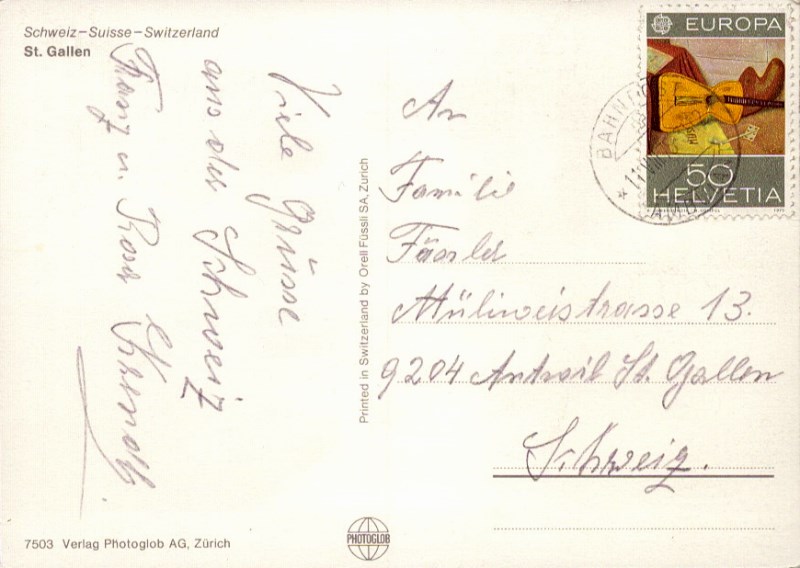 Schweiz–Suisse–Switzerland
St. Gallen
Viele Grüsse
aus der Schweiz
Franz u. Rosa
Printed in Switzerland by Orell Füssli SA, Zürich
EUROPA
50
HELVETIA
BAHN
AMB
An
Familie
Fässler
Müliweistrasse 13.
9204 Antwil St. Gallen
Schweiz.
7503 Verlag Photoglob AG, Zürich
PHOTOGLOB